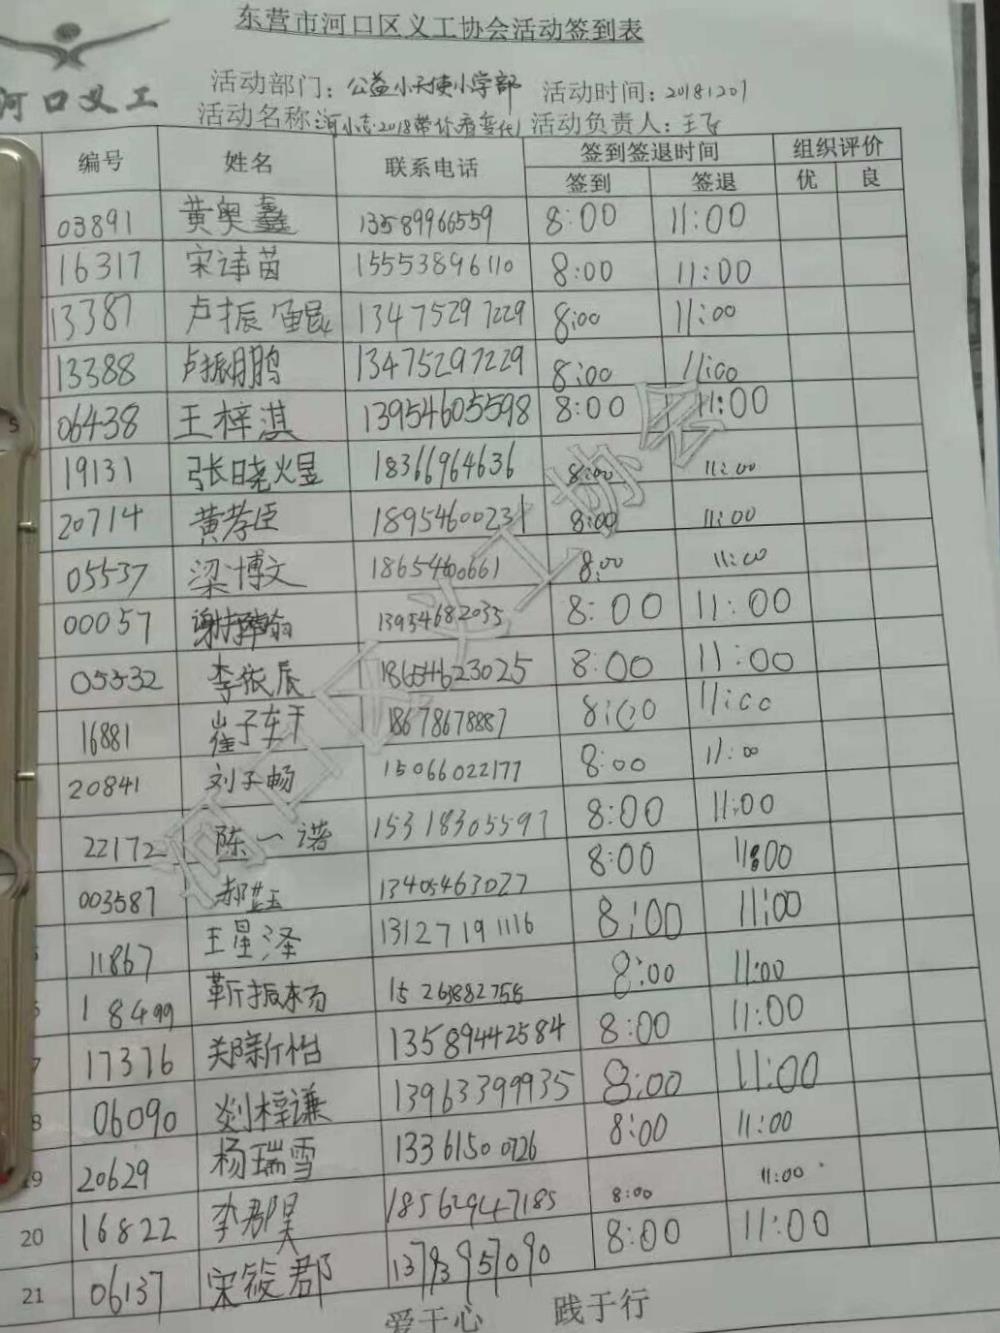 东营市河口区义工协会活动签到表
河口义工
活动部门：公益小天使小学部 活动时间：20181201
活动名称：河小志2018带你看变化 活动负责人：王飞
编号 姓名 联系电话 签到签退时间 组织评价
签到 签退 优 良
03891 黄奥鑫 13589966559 8:00 11:00
16317 宋诗茵 15553896110 8:00 11:00
13387 卢振 13475297229 8:00 11:00
13388 卢振鹏 13475297229 8:00 11:00
06438 王梓淇 13954605598 8:00 11:00
19131 张晓煜 18366964636 8:00 11:00
20714 黄孝臣 18954600231 8:00 11:00
05537 梁博文 18654600661 8:00 11:00
00057 谢 13954682035 8:00 11:00
05532 李依辰 18654623025 8:00 11:00
16881 崔子轩 18678678887 8:00 11:00
20841 刘子畅 15066022177 8:00 11:00
22172 陈一诺 15318305597 8:00 11:00
003587 郝 13405463027 8:00 11:00
11867 王星泽 13127191116 8:00 11:00
18499 靳振杨 15263882755 8:00 11:00
17376 郑新怡 13589442584 8:00 11:00
8 06090 刘梓谦 13963399935 8:00 11:00
19 20629 杨瑞雪 13361500726 8:00 11:00
20 16822 李郡昊 18562947185 8:00 11:00
21 06137 宋筱郡 13793957090 8:00 11:00
爱于心 践于行
河口区义工协会